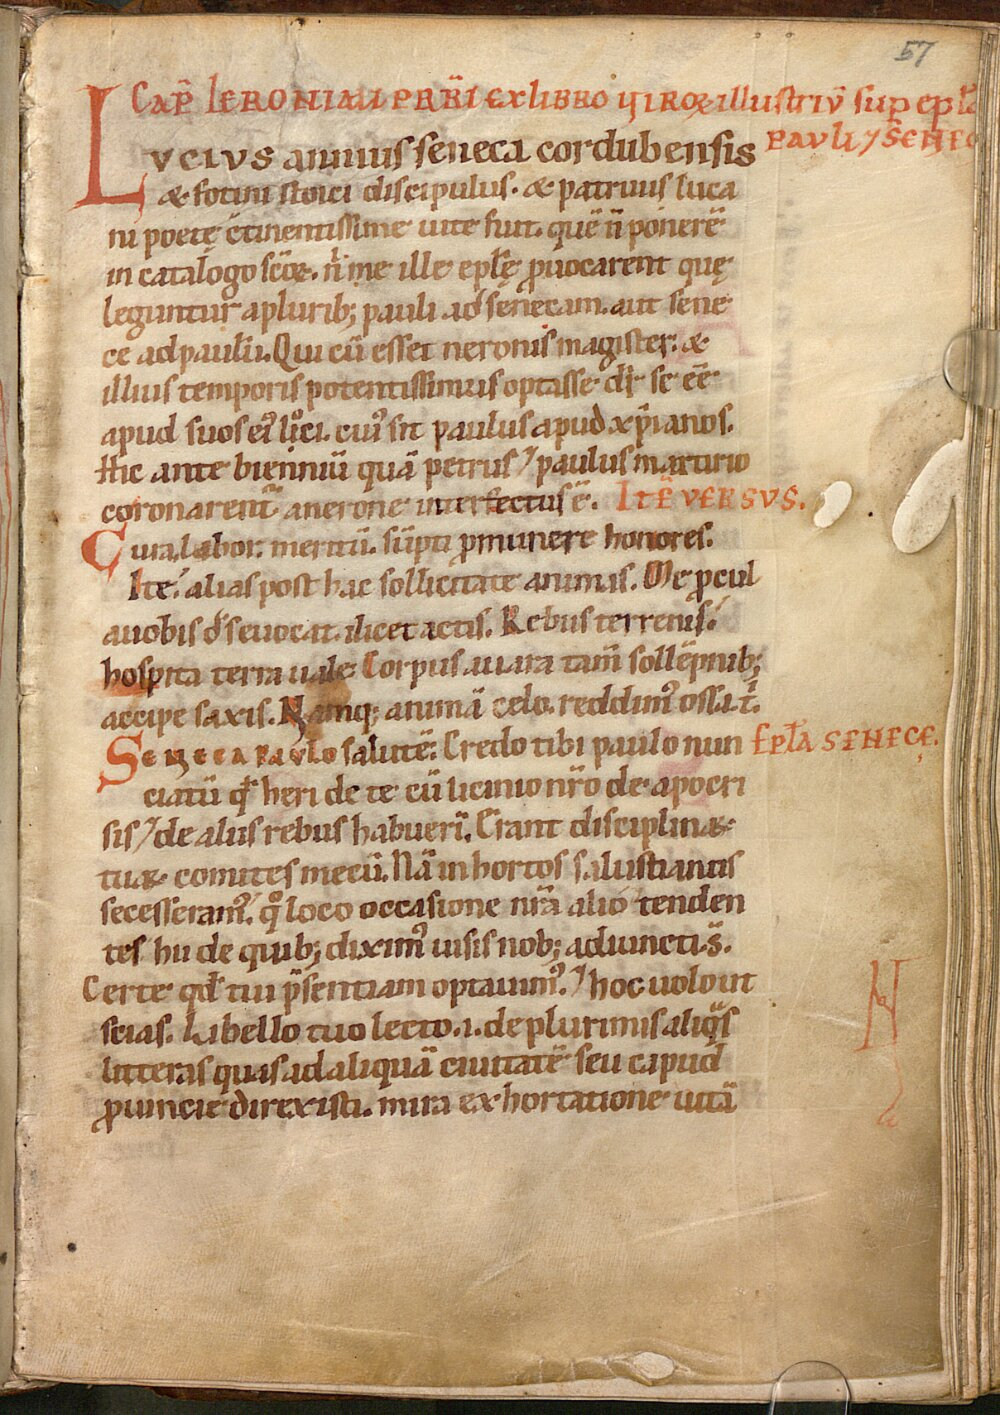 57
Cap̄ Ieronimi prb̄ri ex libro uiroꝝ illustriū sup epl̄a
pauli ⁊ senec
Lvcivs annius seneca cordubensis
& fotini stoici discipulus. & patruus luca
ni poetę c̄tinentissime uite fuit. quē n̄ ponerē
in catalogo sc̄oꝝ. n̄ me ille epl̄ę ꝓuocarent quę
leguntur a plurib; pauli ad senecam. aut sene
ce ad paulū. Qui cū esset neronis magister. &
illius temporis potentissimus optasse dr̄ se eē
apud suos eiꝰ loci. cuiꝰ sit paulus apud xp̄ianos.
Hic ante bienniū quā petrus ⁊ paulus martirio
coronarent᷑ a nerone interfectus ē. Itē versvs.
Cura, labor. meritū. sūpti ꝓ munere honores.
Ite. alias post hac sollicitate animas. Me ꝓcul
a uobis d̄s euocat. ilicet actis. Rebus terrenis.
hospita terra uale. Corpus auara tam̄ sollēpnib;
accipe saxis. Namq; animā celo. reddimꝰ ossa. t᷑.
Seneca pavlo salutē. Credo tibi paulo nun epl̄a senecę.
ciatū qd̄ heri de te cū licinio nr̄o de apocri
sis ⁊ de aliis rebus habuerī. Erant disciplinaꝝ
tuaꝝ comites mecū. Nā in hortos salustianis
secesseramꝰ. qͦ loco occasione nr̄a alió tenden
tes hii de quib; diximꝰ uisis nob; adiuncti s̄.
Certe qd̄ tui p̄sentiam optauimꝰ. ⁊ hoc uolo ut
scias. Libello tuo lecto .i. de plurimis aliqͣs
litteras quas ad aliquā ciuitatē seu capud
ꝓuincie direxisti. mira exhortatione uitā